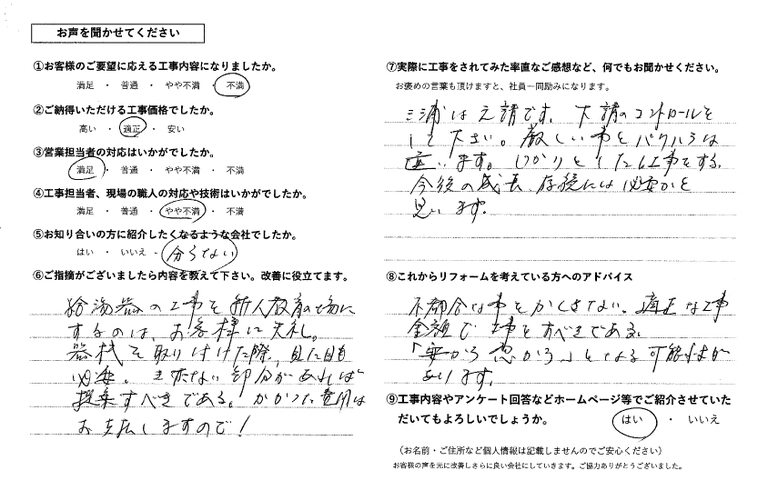 お声を聞かせてください
①お客様のご要望に応える工事内容になりましたか。
満足 ・ 普通 ・ やや不満 ・ 不満
②ご納得いただける工事価格でしたか。
高い ・ 適正 ・ 安い
③営業担当者の対応はいかがでしたか。
満足 ・ 普通 ・ やや不満 ・ 不満
④工事担当者、現場の職人の対応や技術はいかがでしたか。
満足 ・ 普通 ・ やや不満 ・ 不満
⑤お知り合いの方に紹介したくなるような会社でしたか。
はい ・ いいえ ・ 分らない
⑥ご指摘がございましたら内容を教えて下さい。改善に役立てます。
給湯器の工事を新人教育の場に
するのは、お客様に失礼。
器械を取り付けた際、見た目も
必要。 部分があれば
提案すべきである。かかった費用は
お支払しますので!
⑦実際に工事をされてみた率直なご感想など、何でもお聞かせください。
お褒めの言葉も頂けますと、社員一同励みになります。
三浦は元請です。下請のコントロールを
して下さい。厳しい事とパワハラは
違います。しっかりとした工事をする。
今後の成長、存続には必要かと
思います。
⑧これからリフォームを考えている方へのアドバイス
不都合な事をかくさない。適正な工事
金額で工事をすべきである。
「安かろう悪かろう」となる可能性が
あります。
⑨工事内容やアンケート回答などホームページ等でご紹介させていた
だいてもよろしいでしょうか。 はい ・ いいえ
（お名前・ご住所など個人情報は記載しませんのでご安心ください）
お客様の声を元に改善しさらに良い会社にしていきます。ご協力ありがとうございました。